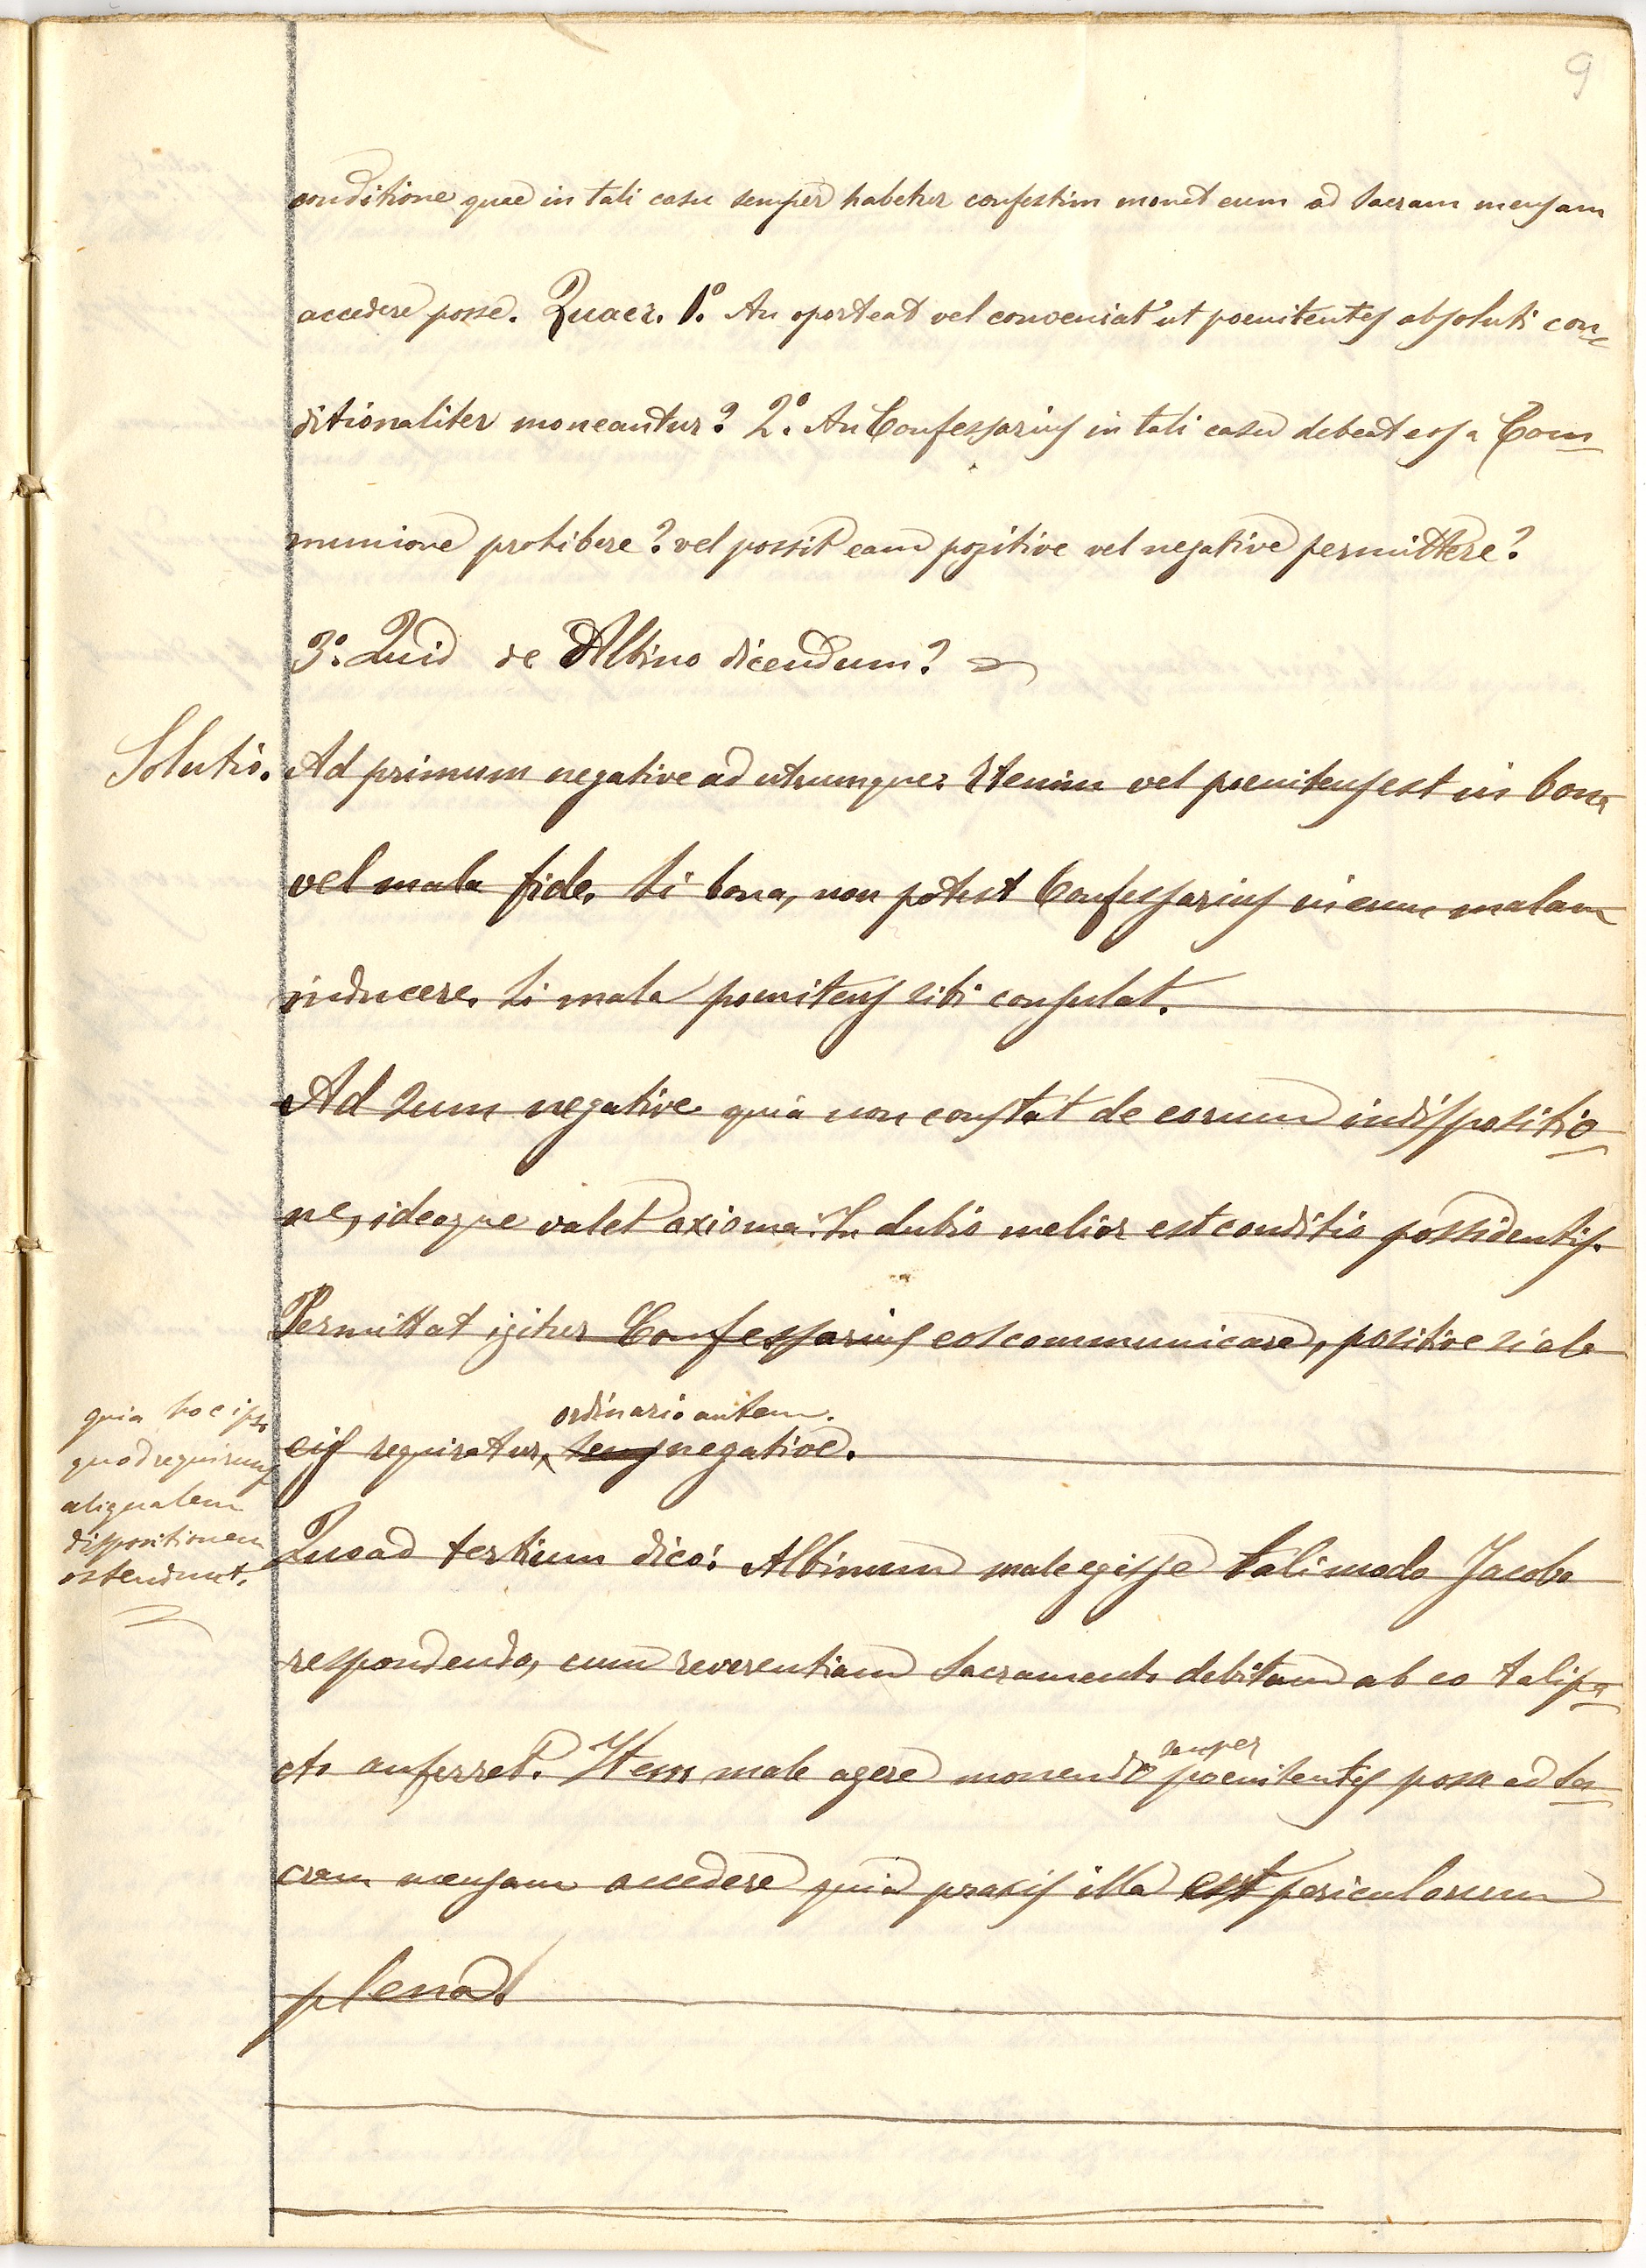 9
conditione quae in tali casu semper habetur confestim monet eum ad sacram mensam
accedere posse. Quaer. 1.° An oporteat vel conveniat ut poenitentes absoluti con-
ditionaliter moneantur? 2.° An Confessarius in tali casu debeat eos a Com-
munione prohibere? vel possit eam positive vel negative permittere?
3.° Quid de Albino dicendum?
Solutio. Ad primum negative ad utrumque: Etenim vel poenitens est in bona
vel mala fide. Si bona, non potest Confessarius in eum malam
inducere. Si mala poenitens sibi consulat.
Ad 2um negative quia non constat de eorum indispositio-
ne, ideoque valet axioma: In dubio melior est conditio possidentis.
Permittat igitur Confessarius eos communicare, positive si ab
ordinario autem
eis requiratur, negative.
quia hoc ipso
quod requirunt
aliqualem
dispositionem
ostendunt.
Quoad tertium dico: Albinum male egisse tali modo Jacobo
respondendo, cum reverentiam Sacramento debitam ab eo tali pa-
cto auferret. Item male agere monendo semper poenitentes posse ad sa-
cram mensam accedere quia praxis illa est periculorum
plena.